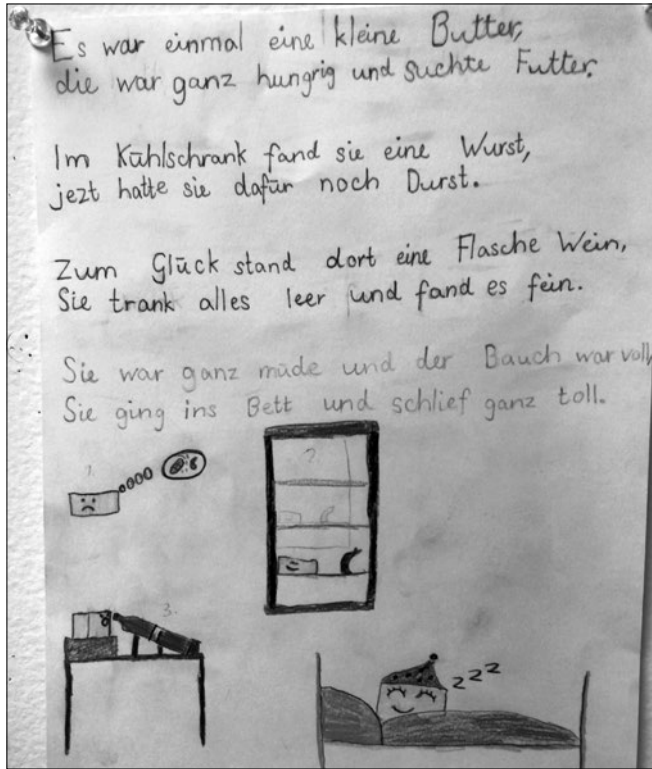 Es war einmal eine kleine Butter,
die war ganz hungrig und suchte Futter.
Im Kühlschrank fand sie eine Wurst,
jezt hatte sie dafür noch Durst.
Zum Glück stand dort eine Flasche Wein,
Sie trank alles leer und fand es fein.
Sie war ganz müde und der Bauch war voll,
Sie ging ins Bett und schlief ganz toll.
1.
2.
3.
zzz